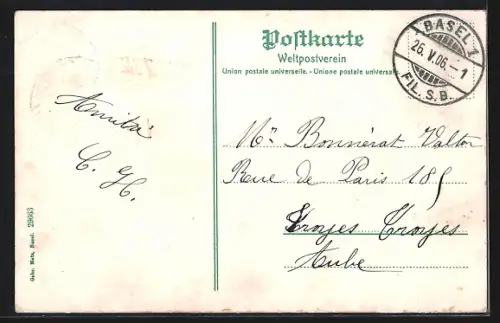 Postkarte
Weltpostverein
Union postale universelle. - Unione postale universale.
BASEL 1
26.V.06.-1
FIL. S. B.
Amitié
C. H.
Mr Bonnérat Valton
Rue de Paris 185
Troyes Troyes
Aube
Gebr. Metz, Basel. 29603